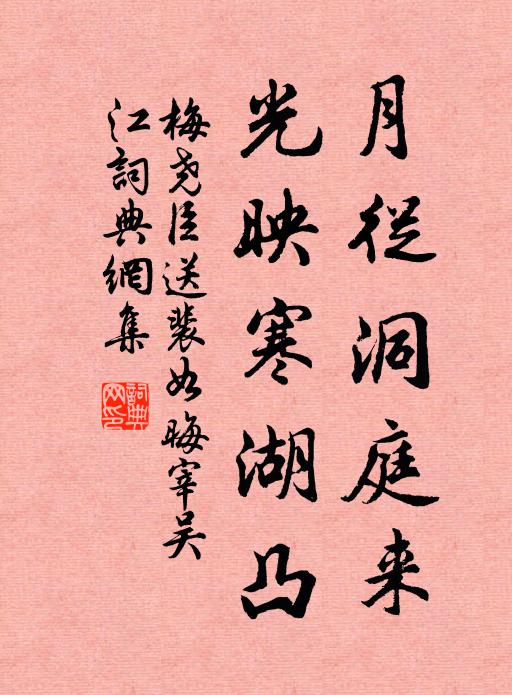 月從洞庭来
光映寒湖凸
梅尧臣送裴如晦宰吴
江詞典網集
詞典
网印